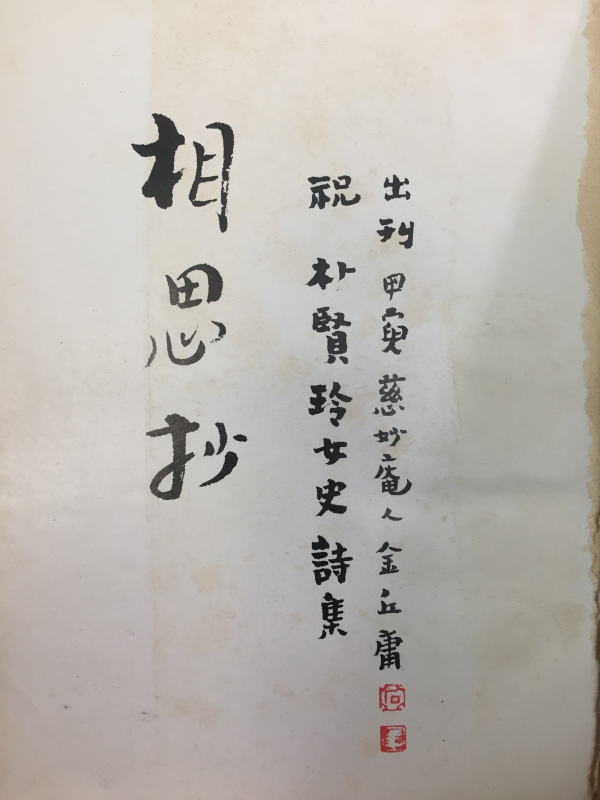 相思抄
祝 朴賢玲女史 詩集
出刊 甲寅 慈妙庵人 金丘庸